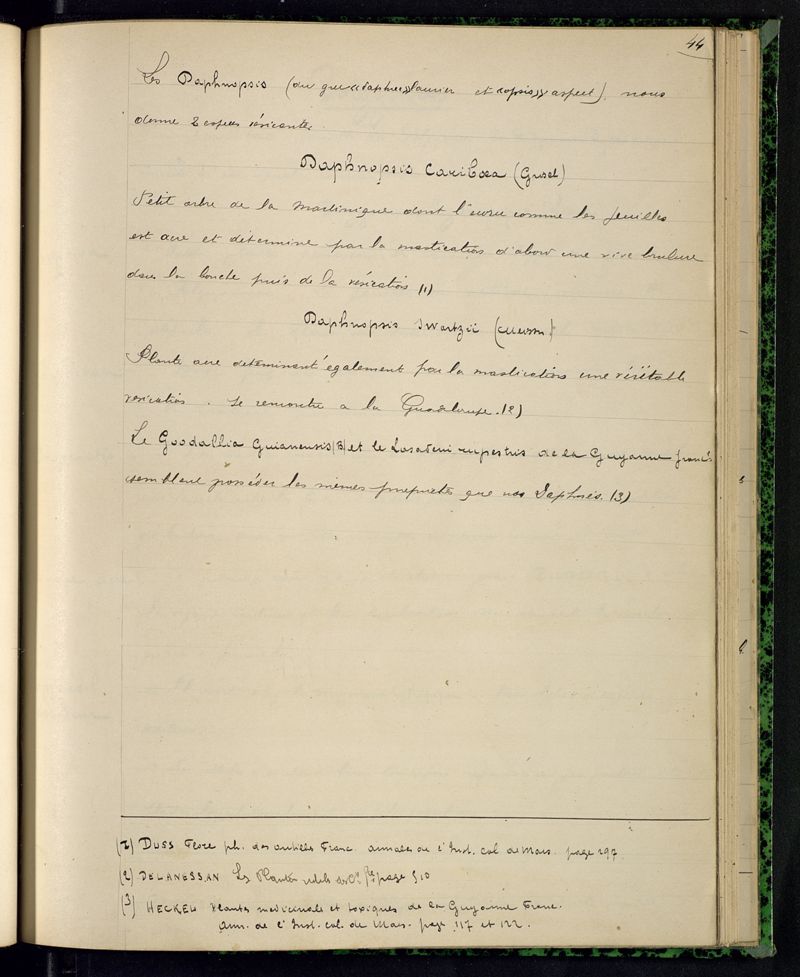 44
Les Daphnopsis (du grec «daphne» laurier et «opsis» aspect) nous
donne 2 espèces vésicantes.
Daphnopsis Cariboea (Griseb)
Petit arbre de la Martinique dont l'écorce comme les feuilles
est acre et détermine par la mastication d'abord une vive brulure
dans la bouche puis de la vésication (1)
Daphnopsis Swartzii (Meissn)
Plante acre déterminant également par la mastication une véritable
vésication. Se rencontre a la Guadeloupe. (2)
Le Goodallia Guianensis (3) et le rupestris de la Guyanne franc.
semblent posséder les mêmes propriétés que nos Daphnés. (3)
(1) DUSS Flore ph. des antilles Franc. annales de l'Inst. Col. de Mars. page 297
(2) DELANESSAN Les Plantes utiles des Col. fses page 510
(3) HECKEL Plantes médicinales et toxiques de la Guyanne Franc.
Ann. de l'Inst. col. de Mars. page 117 et 122.